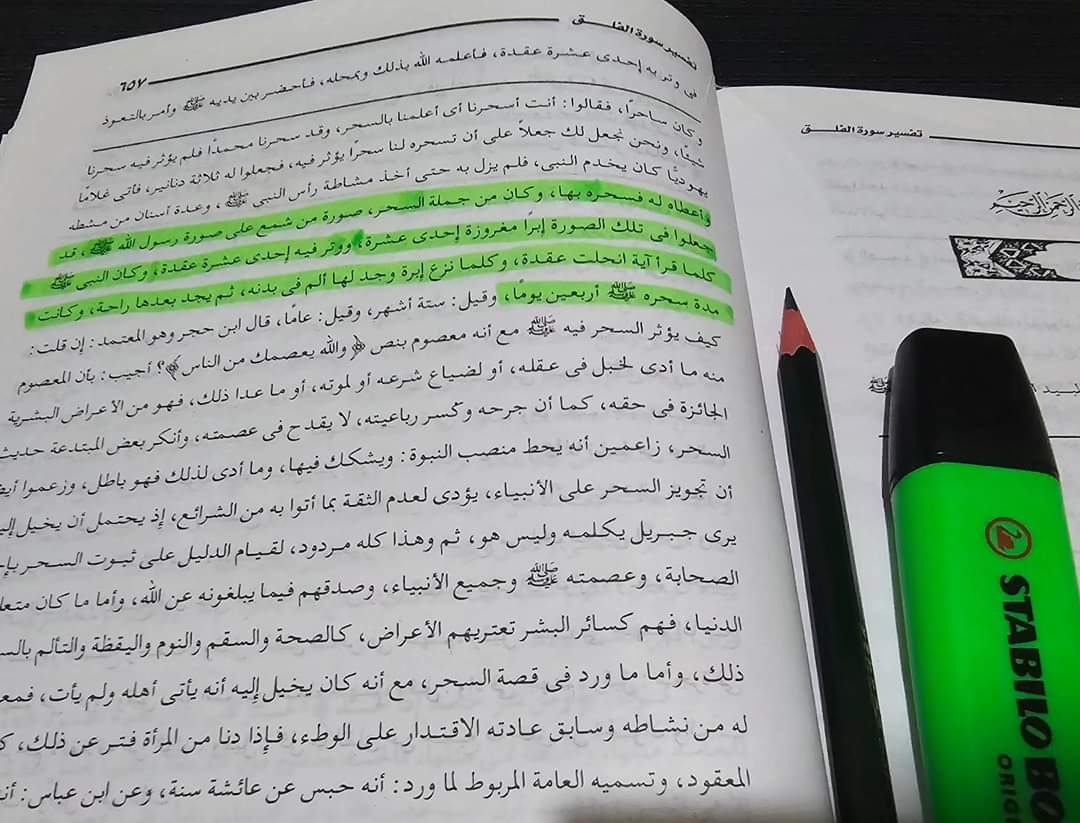 تفسير سورة الفلـــق
٦٥٧
فى وتر به إحدى عشرة عقدة، فأعلمه الله بذلك وبمحله، فأحضر بين يديه ﷺ وأمر بالتعوذ
وكان ساحرًا، فقالوا: أنت أسحرنا أى أعلمنا بالسحر، وقد سحرنا محمدًا فلم يؤثر فيه سحرنا
شيئًا، ونحن نجعل لك جعلاً على أن تسحره لنا سحرًا يؤثر فيه، فجعلوا له ثلاثة دنانير، فأتى غلامًا
يهوديًا كان يخدم النبى، فلم يزل به حتى أخذ مشاطة رأس النبى ﷺ، وعدة أسنان من مشطه
وأعطاه له فسحره بها، وكان من جملة السحر، صورة من شمع على صورة رسول الله ﷺ، قد
جعلوا فى تلك الصورة إبرًا مغروزة إحدى عشرة، ووتر فيه إحدى عشرة عقدة، وكان النبى ﷺ
كلما قرأ آية انحلت عقدة، وكلما نزع إبرة وجد لها ألم فى بدنه، ثم يجد بعدها راحة، وكانت
مدة سحره ﷺ أربعين يومًا، وقيل: ستة أشهر، وقيل: عامًا، قال ابن حجر وهو المعتمد: إن قلت:
كيف يؤثر السحر فيه ﷺ مع أنه معصوم بنص ﴿والله يعصمك من الناس﴾؟ أجيب: بأن المعصوم
منه ما أدى لخبل فى عقله، أو لضياع شرعه أو لموته، أو ما عدا ذلك، فهو من الأعراض البشرية
الجائزة فى حقه، كما أن جرحه وكسر رباعيته، لا يقدح فى عصمته، وأنكر بعض المبتدعة حديث
السحر، زاعمين أنه يحط منصب النبوة: ويشكك فيها، وما أدى لذلك فهو باطل، وزعموا
أن تجويز السحر على الأنبياء، يؤدى لعدم الثقة بما أتوا به من الشرائع، إذ يحتمل أن يخيل
يرى جبريل يكلمه وليس هو، ثم وهذا كله مردود، لقيام الدليل على ثبوت السحر
الصحابة، وعصمته ﷺ وجميع الأنبياء، وصدقهم فيما يبلغونه عن الله، وأما ما كان
الدنيا، فهم كسائر البشر تعتريهم الأعراض، كالصحة والسقم والنوم واليقظة والتألم
ذلك، وأما ما ورد فى قصة السحر، مع أنه كان يخيل إليه أنه يأتى أهله ولم يأت،
له من نشاطه وسابق عادته الاقتدار على الوطء، فإذا دنا من المرأة فتر عن ذلك،
المعقود، وتسميه العامة المربوط لما ورد: أنه حبس عن عائشة سنة، وعن ابن عباس:
تفسير سورة الفلـــق
STABILO BO
ORIGI